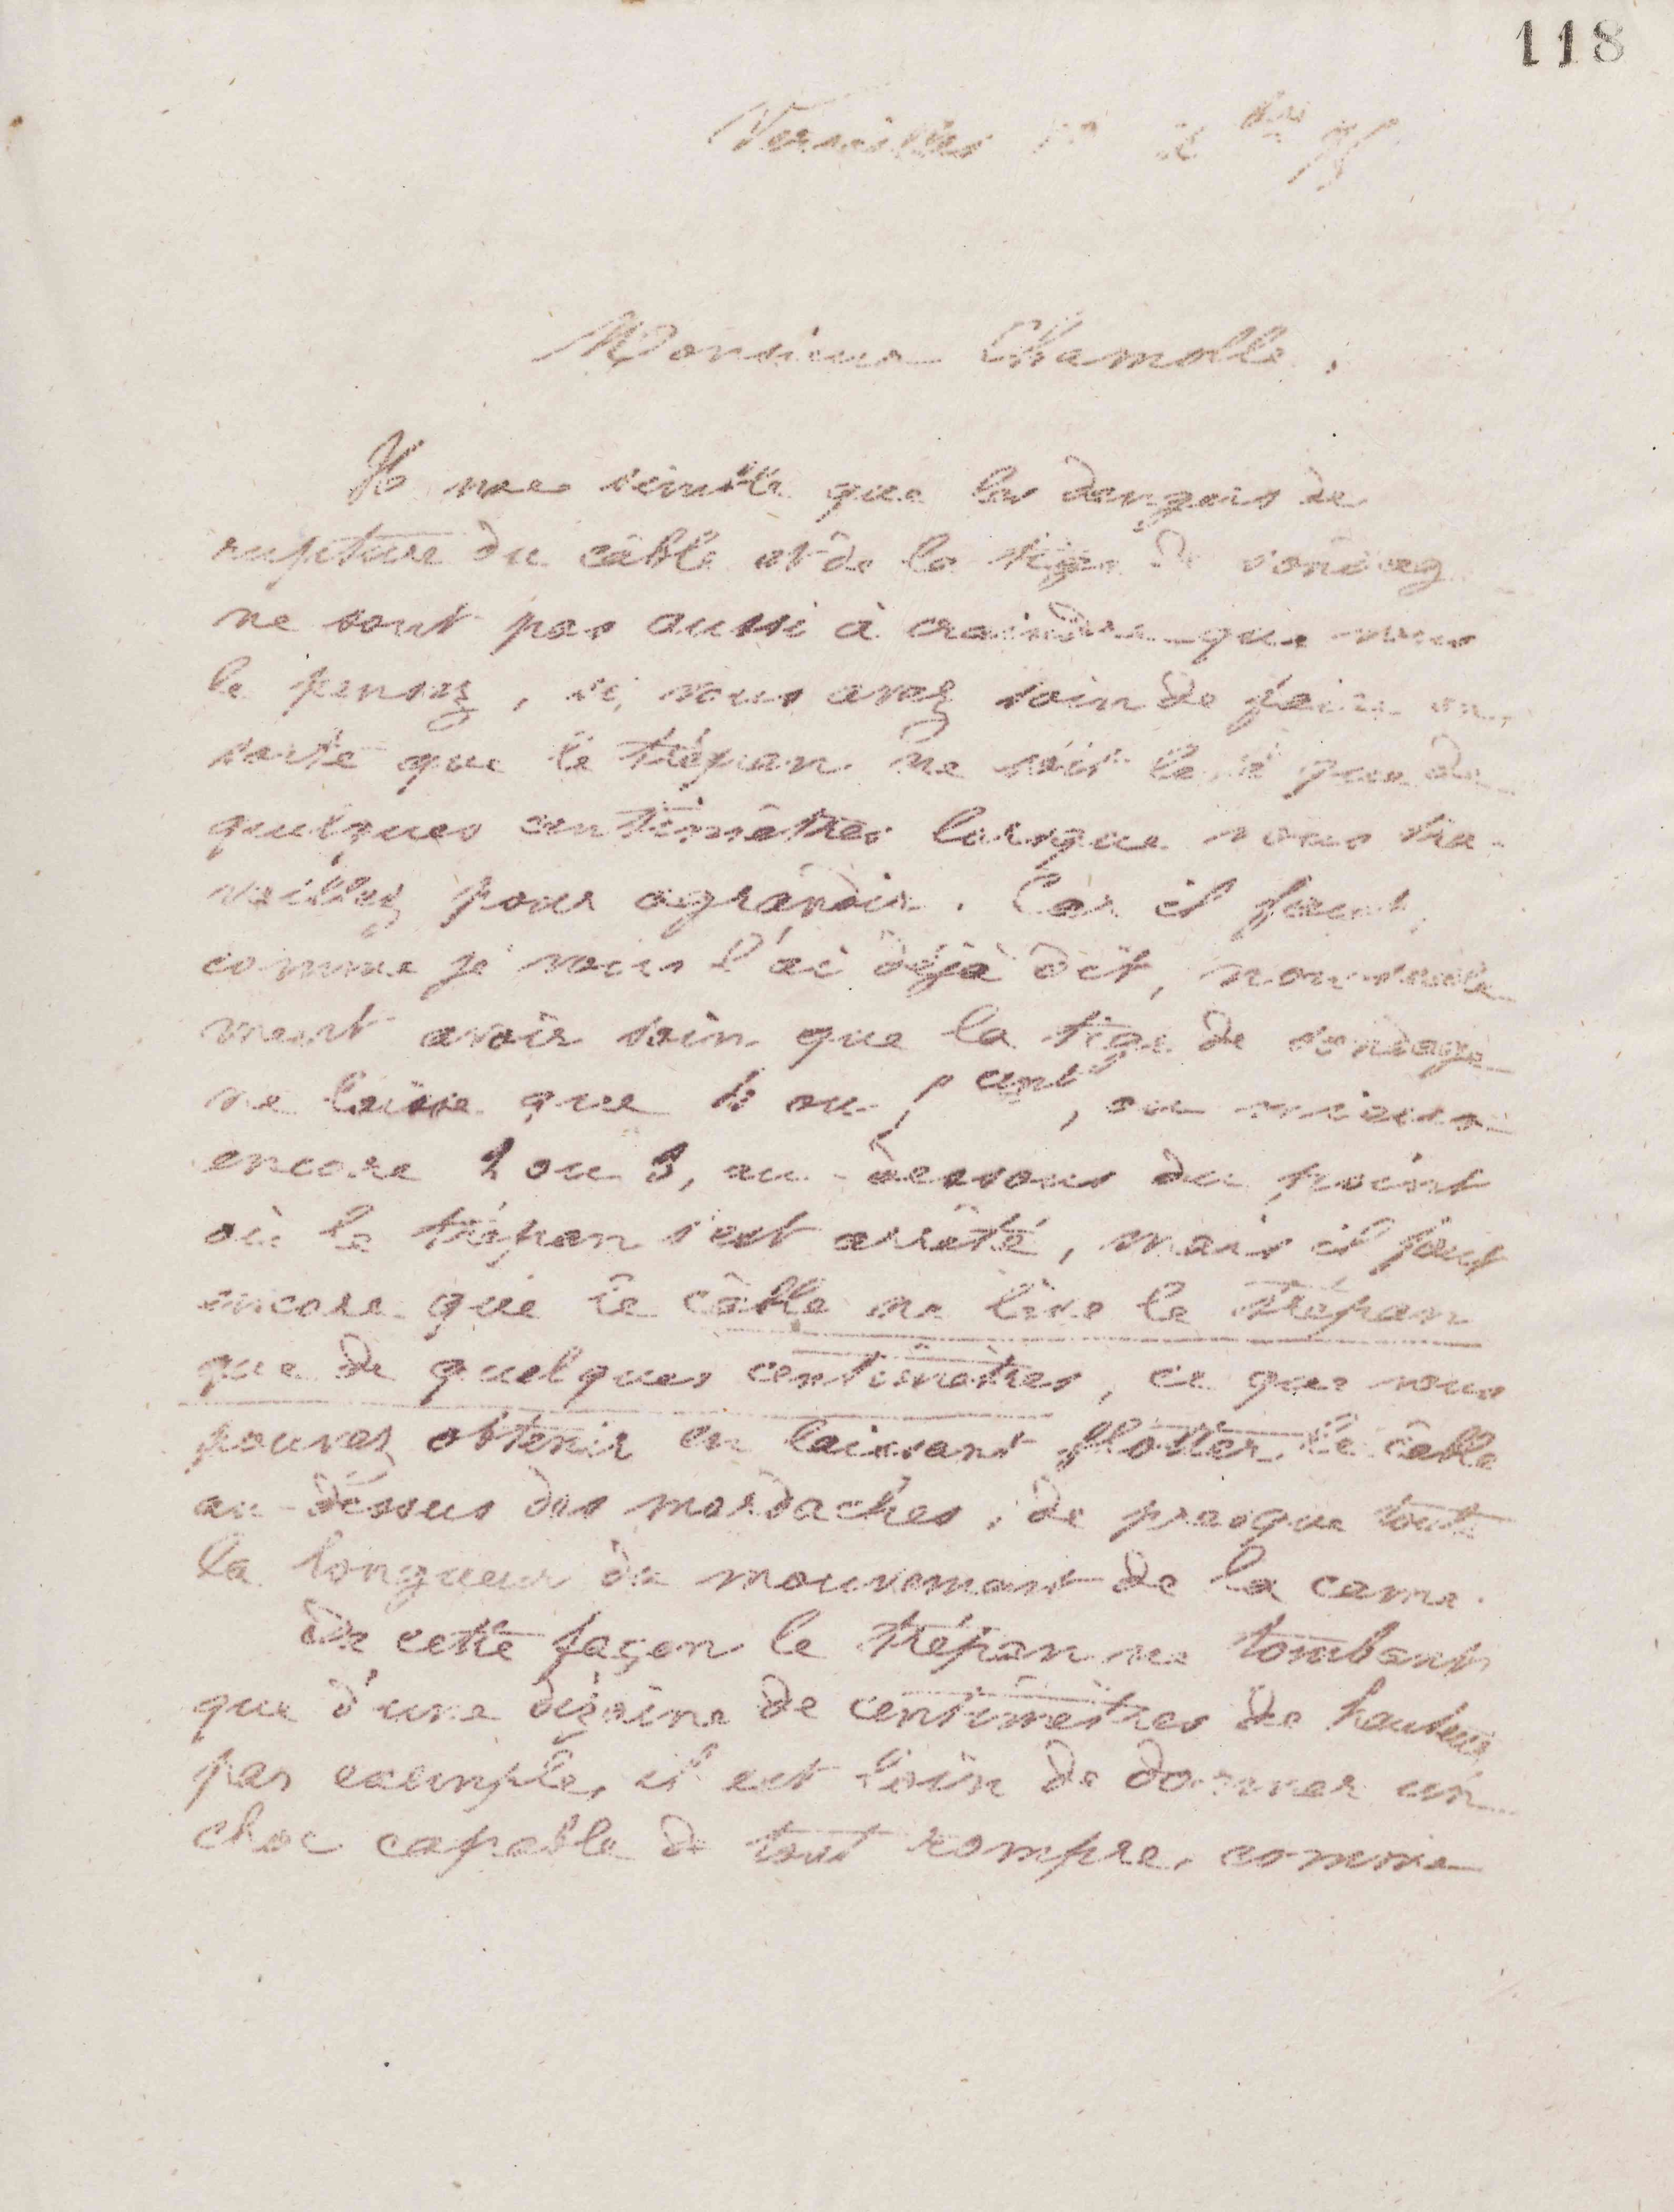 118
Versailles
Monsieur Chamolle.
Il me semble que les dangers de
rupture du câble et de la tige de sondag
ne sont pas aussi à craindre que vous
le pensez, si, vous avez soin de faire en
sorte que le trépan ne soit levé que de
quelques centimètres lorsque vous tra-
vaillez pour agrandir. Car il faut,
comme je vous l'ai déjà dit, non seule
ment avoir soin que la tige de sondage
ne laisse que 4 ou 5 cent, ou mieux
encore 2 ou 3, au-dessous du point
où le trépan s'est arrêté, mais il faut
encore que le câble ne lève le trépan
que de quelques centimètres, ce que vous
pouvez obtenir en laissant flotter le câble
au-dessus des mordaches, de presque toute
la longueur du mouvement de la came.
De cette façon le trépan ne tombant
que d'une dizaine de centimètres de hauteur
par exemple, il est loin de donner un
choc capable de tout rompre, comme